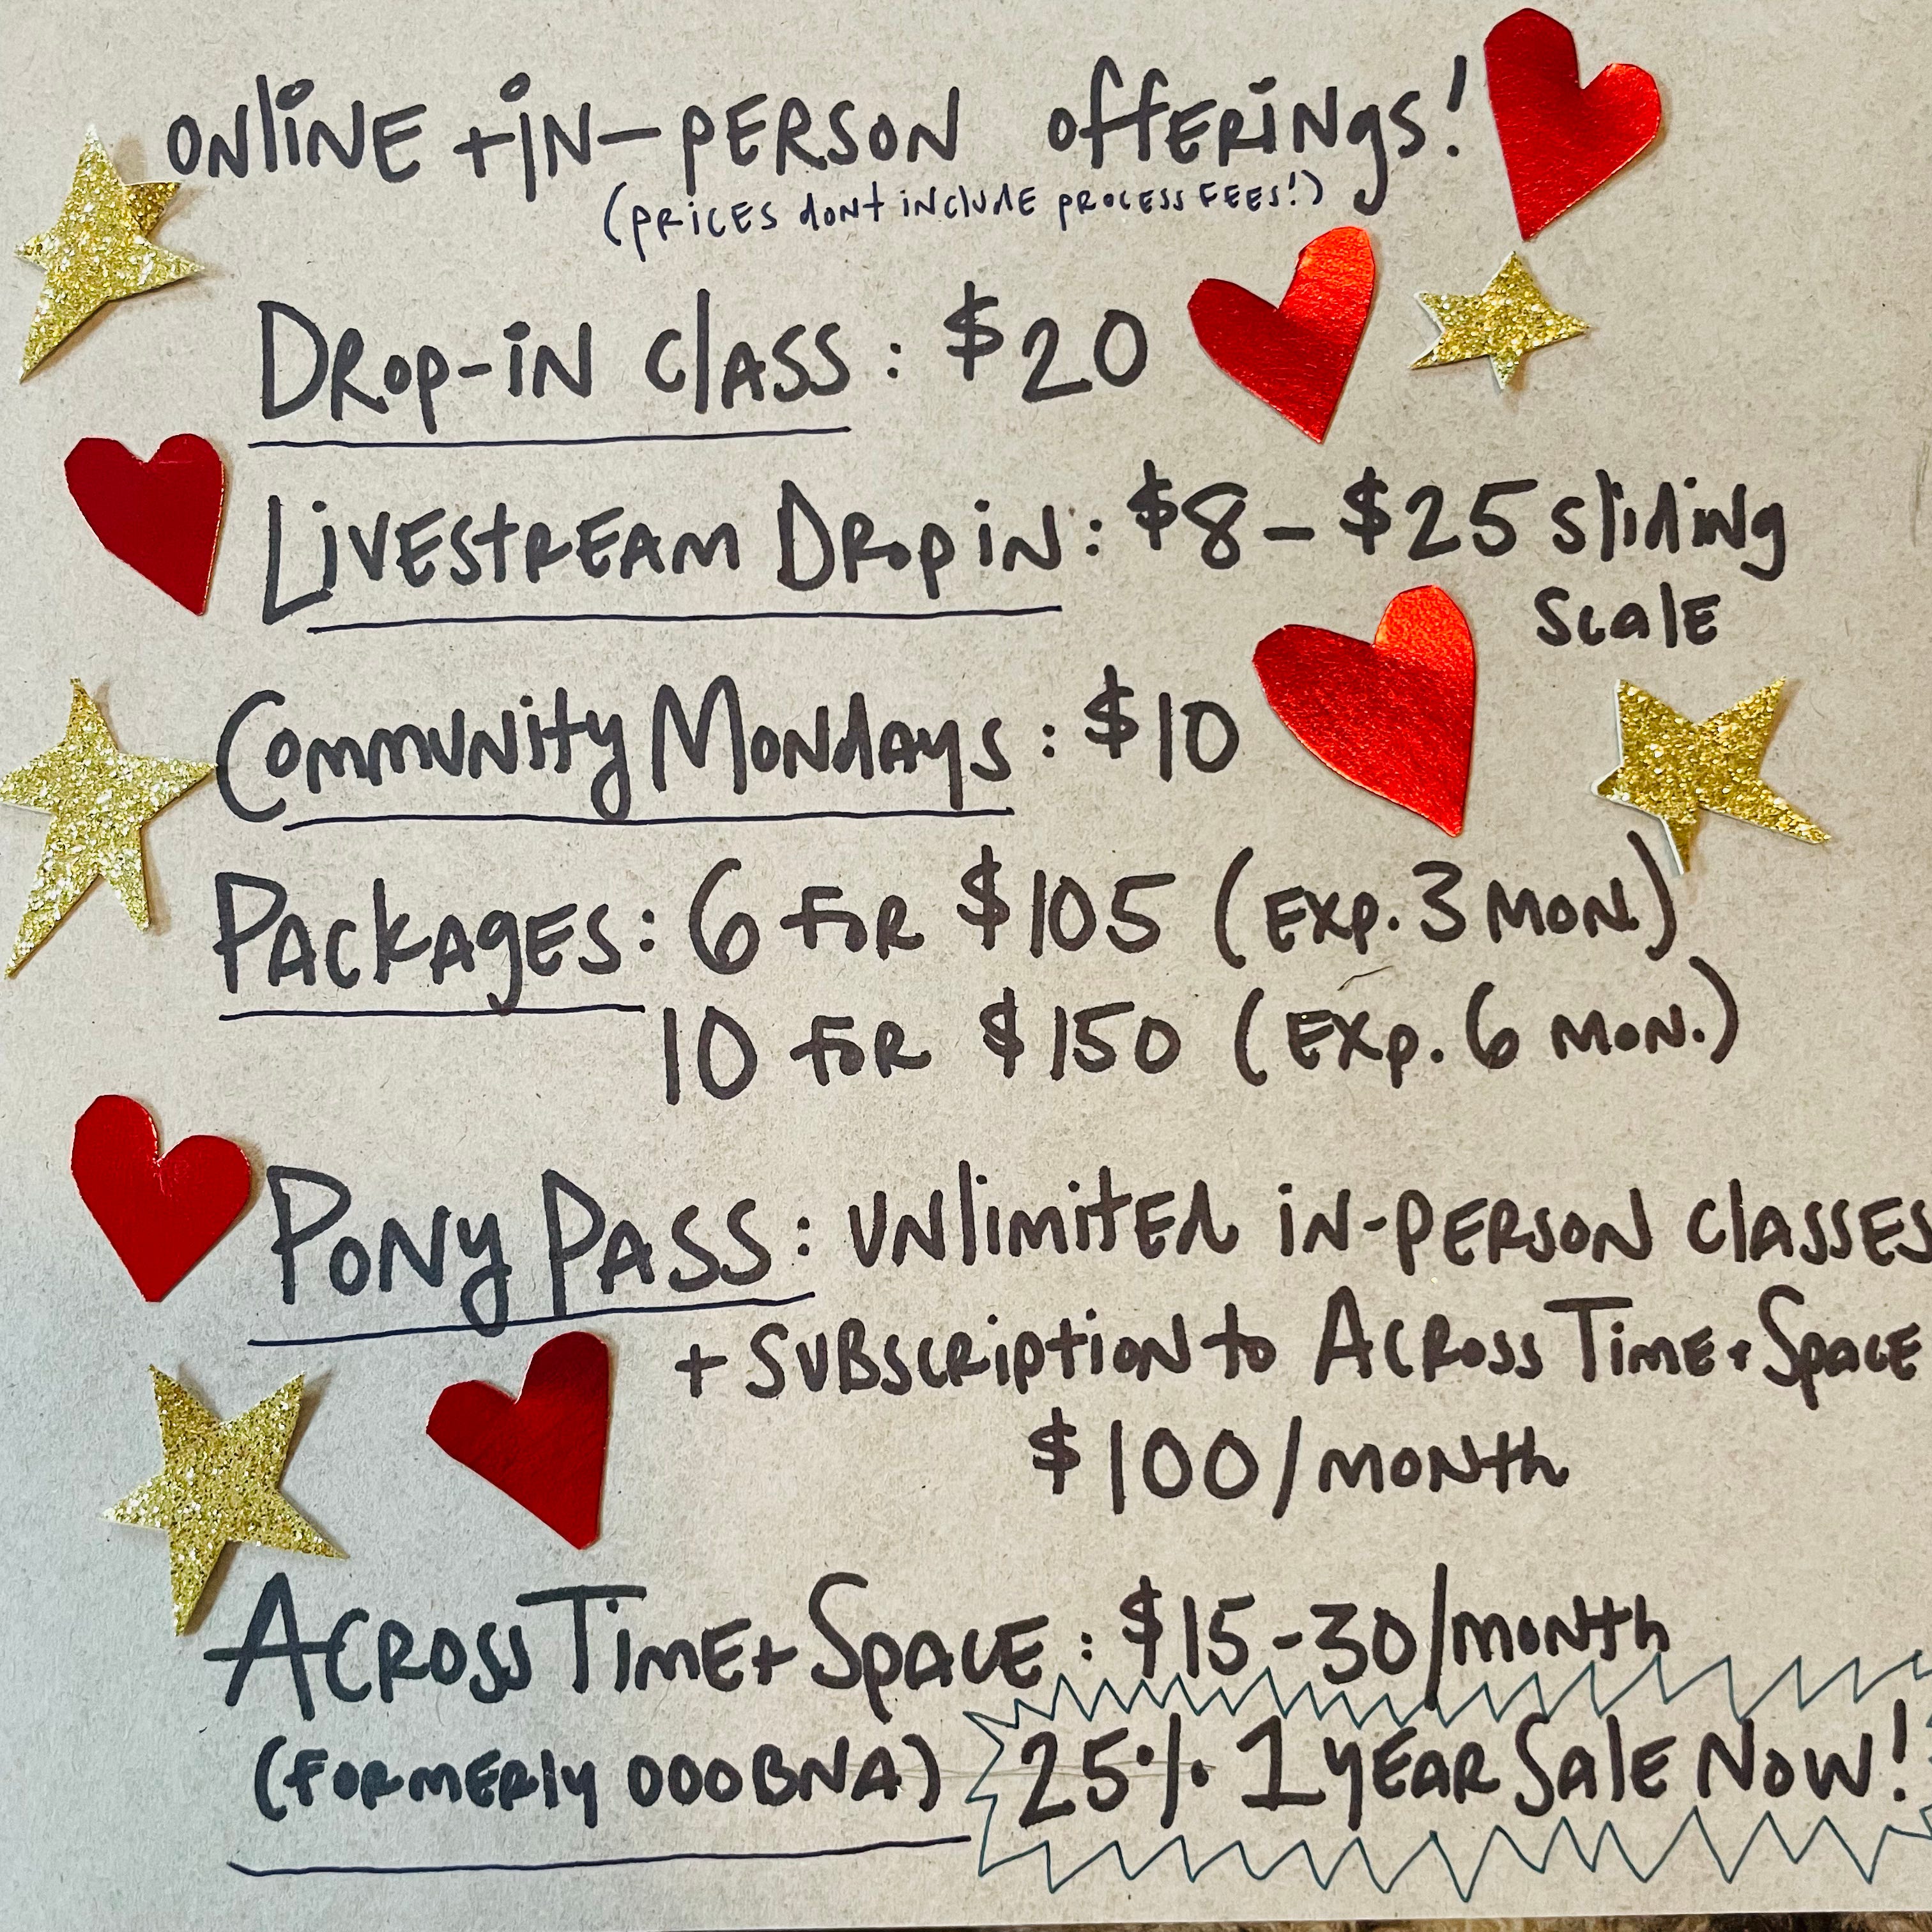 ONLINE + IN-PERSON OFFERINGS!
(PRICES DONT INCLUDE PROCESS FEES!)
DROP-IN CLASS: $20
LIVESTREAM DROP IN: $8-$25 SLIDING
SCALE
COMMUNITY MONDAYS: $10
PACKAGES: 6 FOR $105 (EXP. 3 MON.)
10 FOR $150 (EXP. 6 MON.)
PONY PASS: UNLIMITED IN-PERSON CLASSES
+ SUBSCRIPTION TO ACROSS TIME + SPACE
$100/MONTH
ACROSS TIME + SPACE: $15-30/MONTH
(FORMERLY OOOBNA) 25% 1 YEAR SALE NOW!